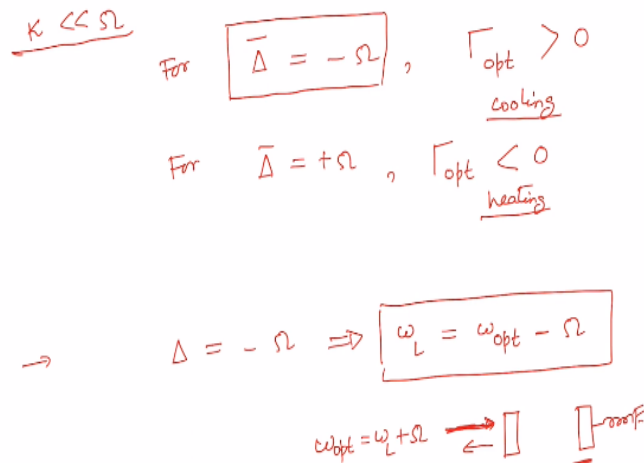 κ << Ω
For Δ̅ = - Ω , Γopt > 0
cooling
For Δ̅ = +Ω , Γopt < 0
heating
→ Δ = - Ω ⇒ ω_L = ω_opt - Ω
ω_opt = ω_L + Ω